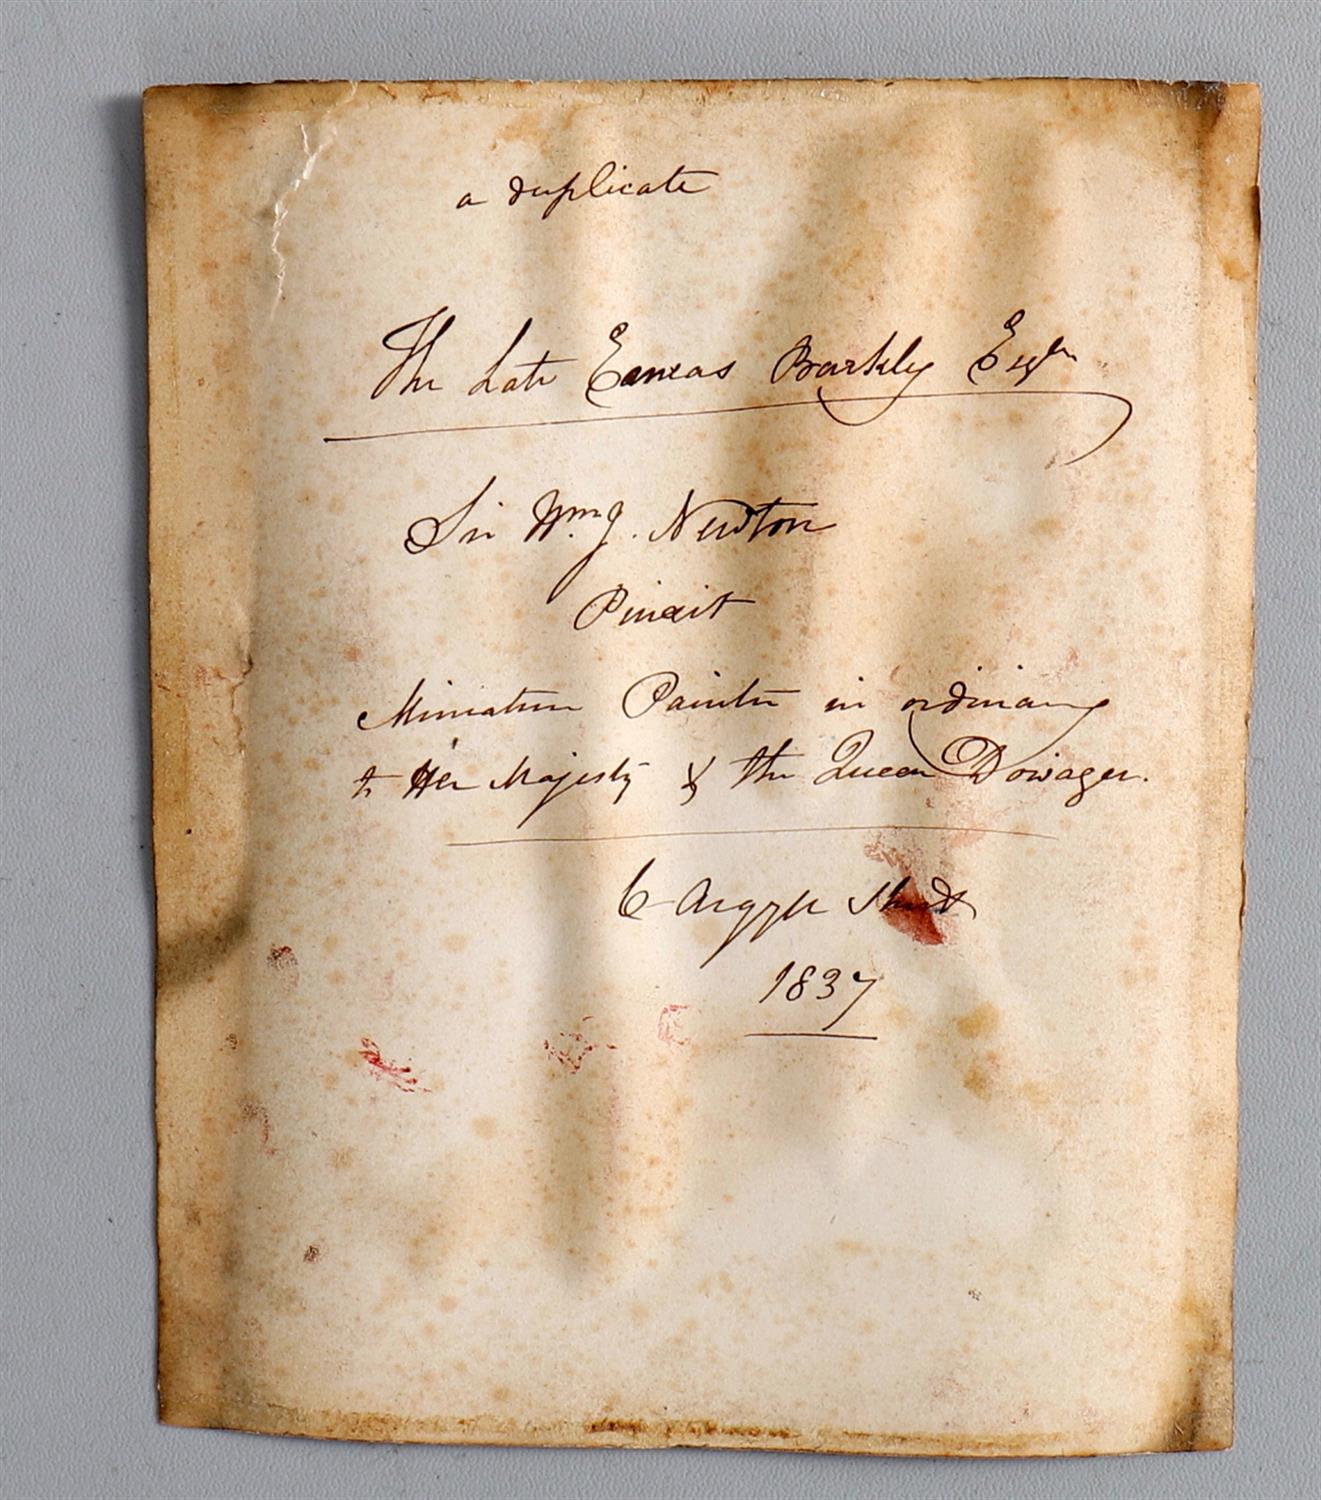 a duplicate
The Late Eaneas Barkly Esqre
Sir Wm. J. Newton
Pinxit
Miniature Painter in ordinary
to Her Majesty & the Queen Dowager.
6 Argyle Street
1837